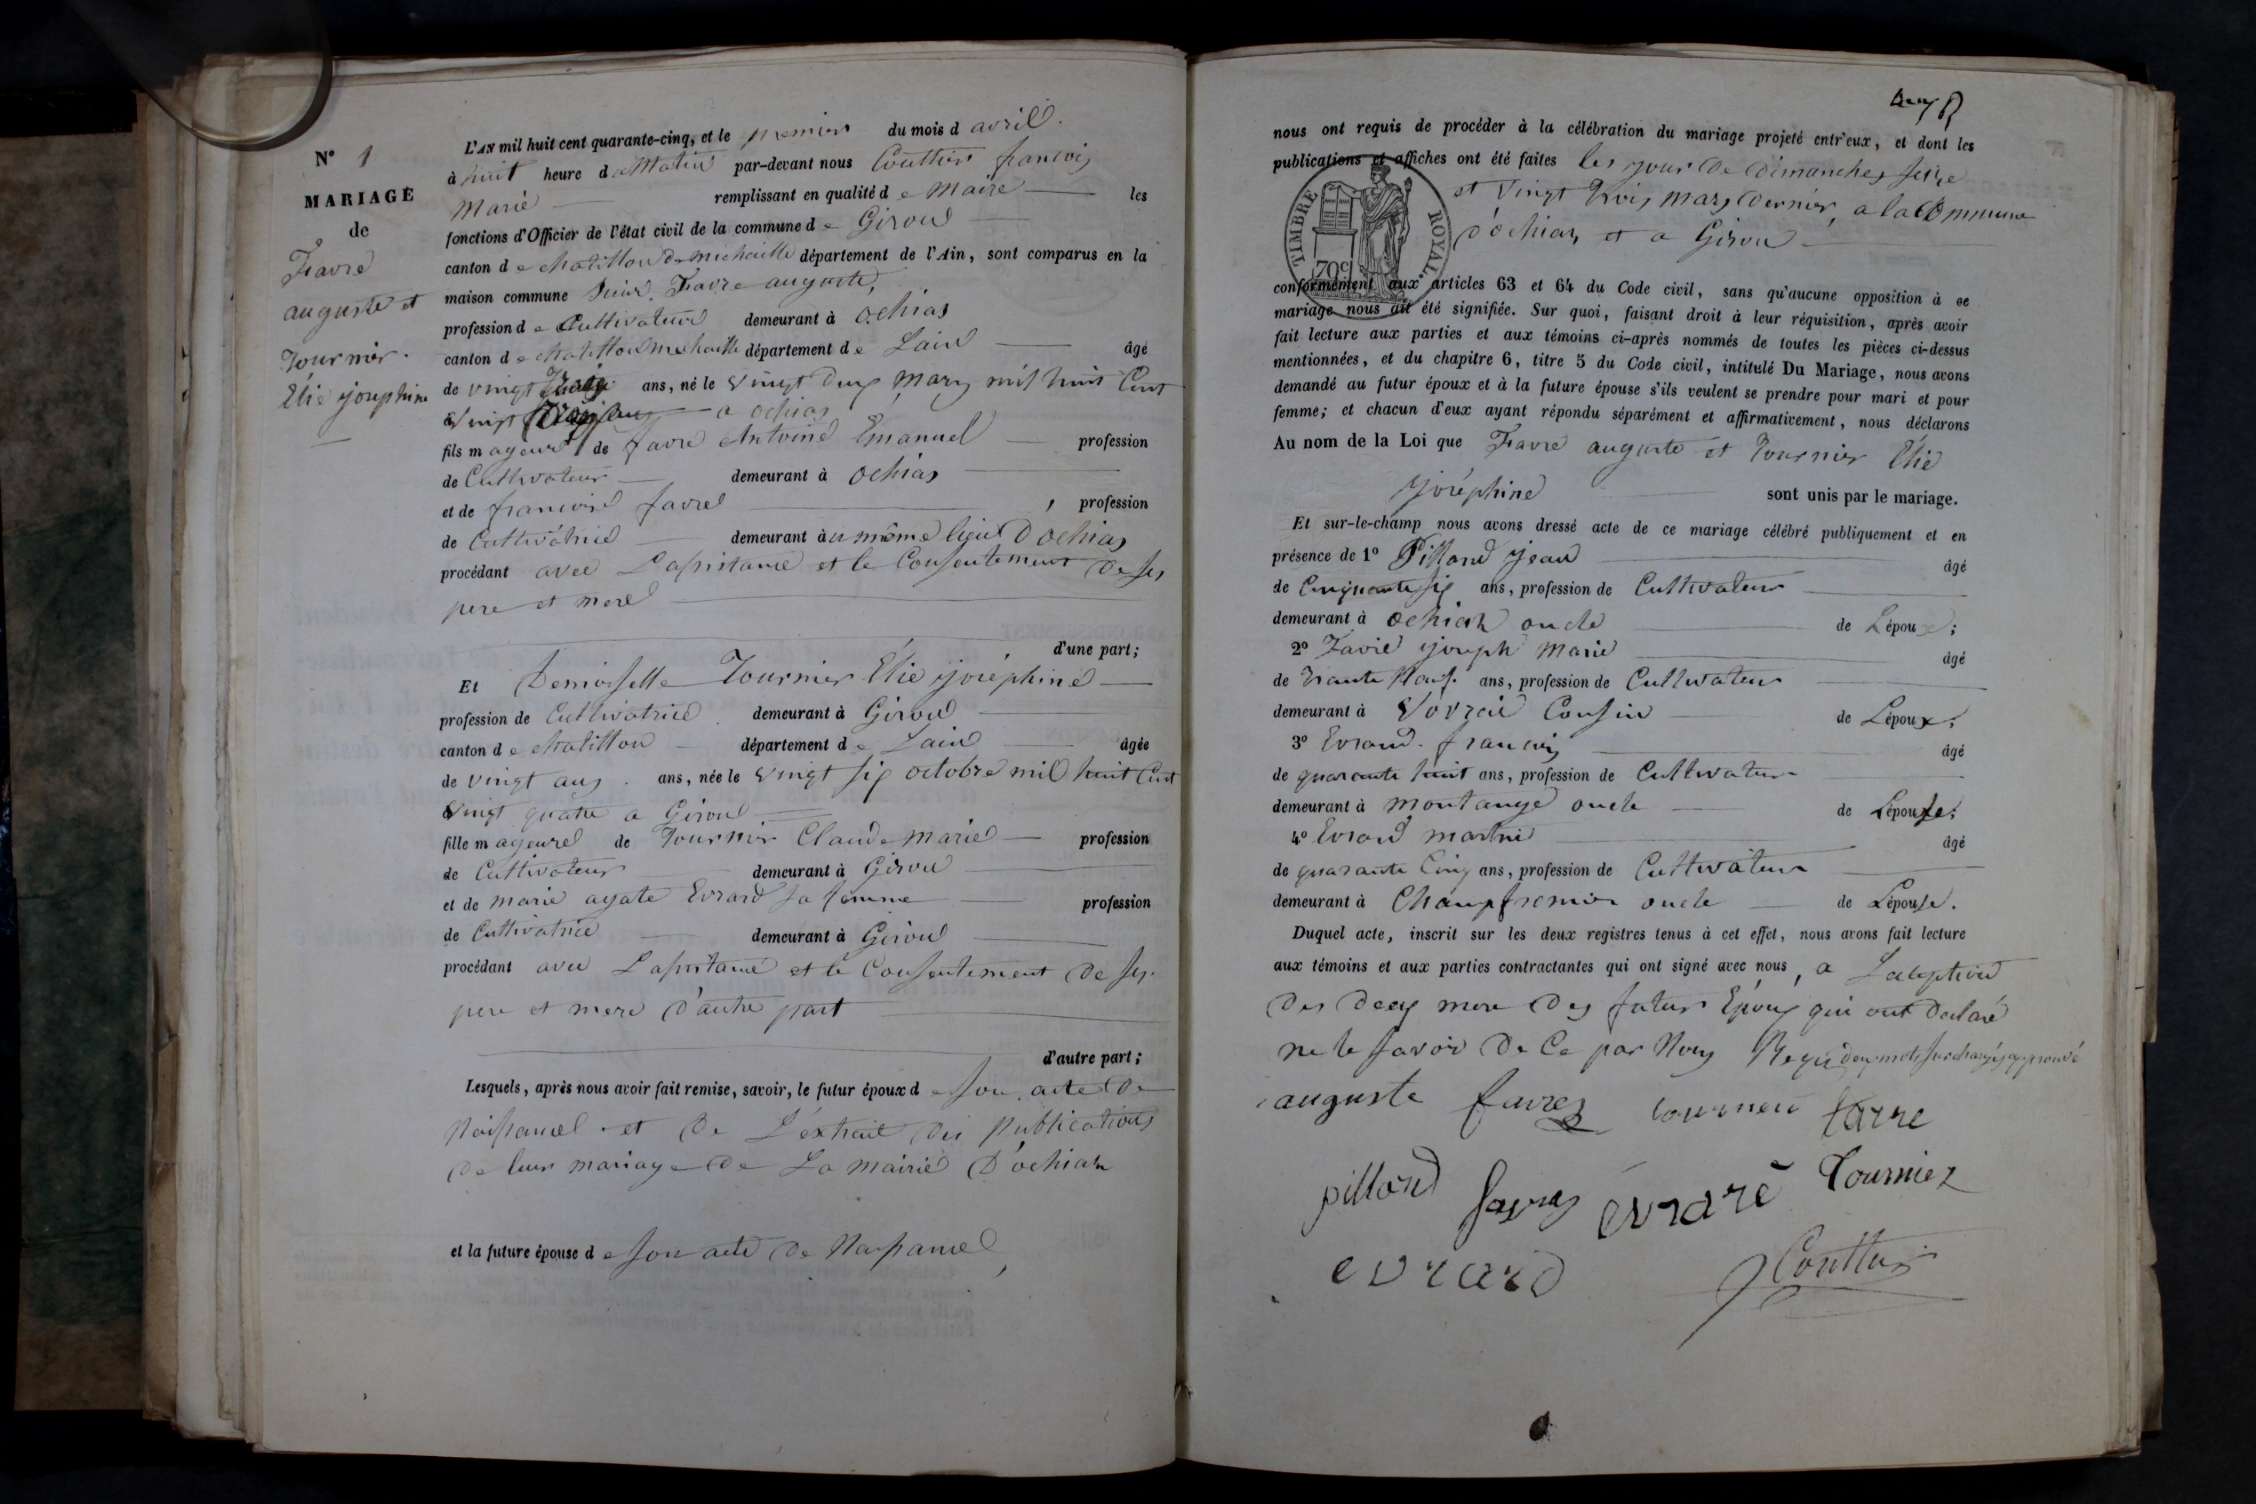 N° 1
MARIAGE
de
Favre
auguste et
Tournier.
Elie joséphine
L'AN mil huit cent quarante-cinq, et le premier du mois d avril.
à huit heure d u Matin par-devant nous Couttier francois
Marie remplissant en qualité d e Maire les
fonctions d'Officier de l'état civil de la commune d e Giron
canton d e chatillon De michaille département de l'Ain, sont comparus en la
maison commune Sieur Favre auguste,
profession d e Cultivateur demeurant à Ochias
canton d e chatillon michaille département d e Lain âgé
de vingt ans, né le vingt Deux Mars mil huit Cent
vingt a ochias
fils m ageur de favre Antoine Emanuel profession
de Cultivateur demeurant à Ochias
et de francoise favre , profession
de Cultivatrice demeurant à u même lieu D'ochias
procédant avec L'assistance et le Consentement De ses
pere et mere
d'une part;
Et Demoiselle Tournier Elie joséphine
profession de Cultivatrice demeurant à Giron
canton d e chatillon département d e Lain âgée
de vingt ans ans, née le vingt six octobre mil huit Cent
vingt quatre a Giron
fille m ageure de Tournier Claude Marie profession
de Cultivateur demeurant à Giron
et de marie agate Evrard sa femme profession
de Cultivatrice demeurant à Giron
procédant avec L'assistance et le Consentement De ses
pere et mere D'autre part
d'autre part;
Lesquels, après nous avoir fait remise, savoir, le futur époux d e son acte De
Naissance et De L'extrait Des publications
De leur mariage De La mairie D'ochias
et la future épouse d e son acte De Naissance,
nous ont requis de procéder à la célébration du mariage projeté entr'eux, et dont les
publications et affiches ont été faites les jour De Dimanches seize
et vingt trois mars Dernier, a la Commune
D'ochias et a Giron
TIMBRE ROYAL.
70c
conformément aux articles 63 et 64 du Code civil, sans qu'aucune opposition à ce
mariage nous ait été signifiée. Sur quoi, faisant droit à leur réquisition, après avoir
fait lecture aux parties et aux témoins ci-après nommés de toutes les pièces ci-dessus
mentionnées, et du chapitre 6, titre 5 du Code civil, intitulé Du Mariage, nous avons
demandé au futur époux et à la future épouse s'ils veulent se prendre pour mari et pour
femme; et chacun d'eux ayant répondu séparément et affirmativement, nous déclarons
Au nom de la Loi que Favre auguste et Tournier Elie
joséphine sont unis par le mariage.
Et sur-le-champ nous avons dressé acte de ce mariage célébré publiquement et en
présence de 1° Pilland jean âgé
de Cinquante six ans, profession de Cultivateur
demeurant à Ochias oncle de Lépoux;
2° Favre joseph Marie âgé
de trante Neuf ans, profession de Cultivateur
demeurant à Vovray Cousin de Lépoux;
3° Evrard francois âgé
de quarante huit ans, profession de Cultivateur
demeurant à montange oncle de Lépouse;
4° Evrard martin âgé
de quarante Cinq ans, profession de Cultivateur
demeurant à Champfromier oncle de Lépouse.
Duquel acte, inscrit sur les deux registres tenus à cet effet, nous avons fait lecture
aux témoins et aux parties contractantes qui ont signé avec nous, a
Des Deux mere Des futurs Epoux qui ont Declaré
ne le savoir De Ce par Nous Requis Deux mots surchargés approuvé
auguste favre tournier favre
pillard favre evrard Tournier
evrard Couttier